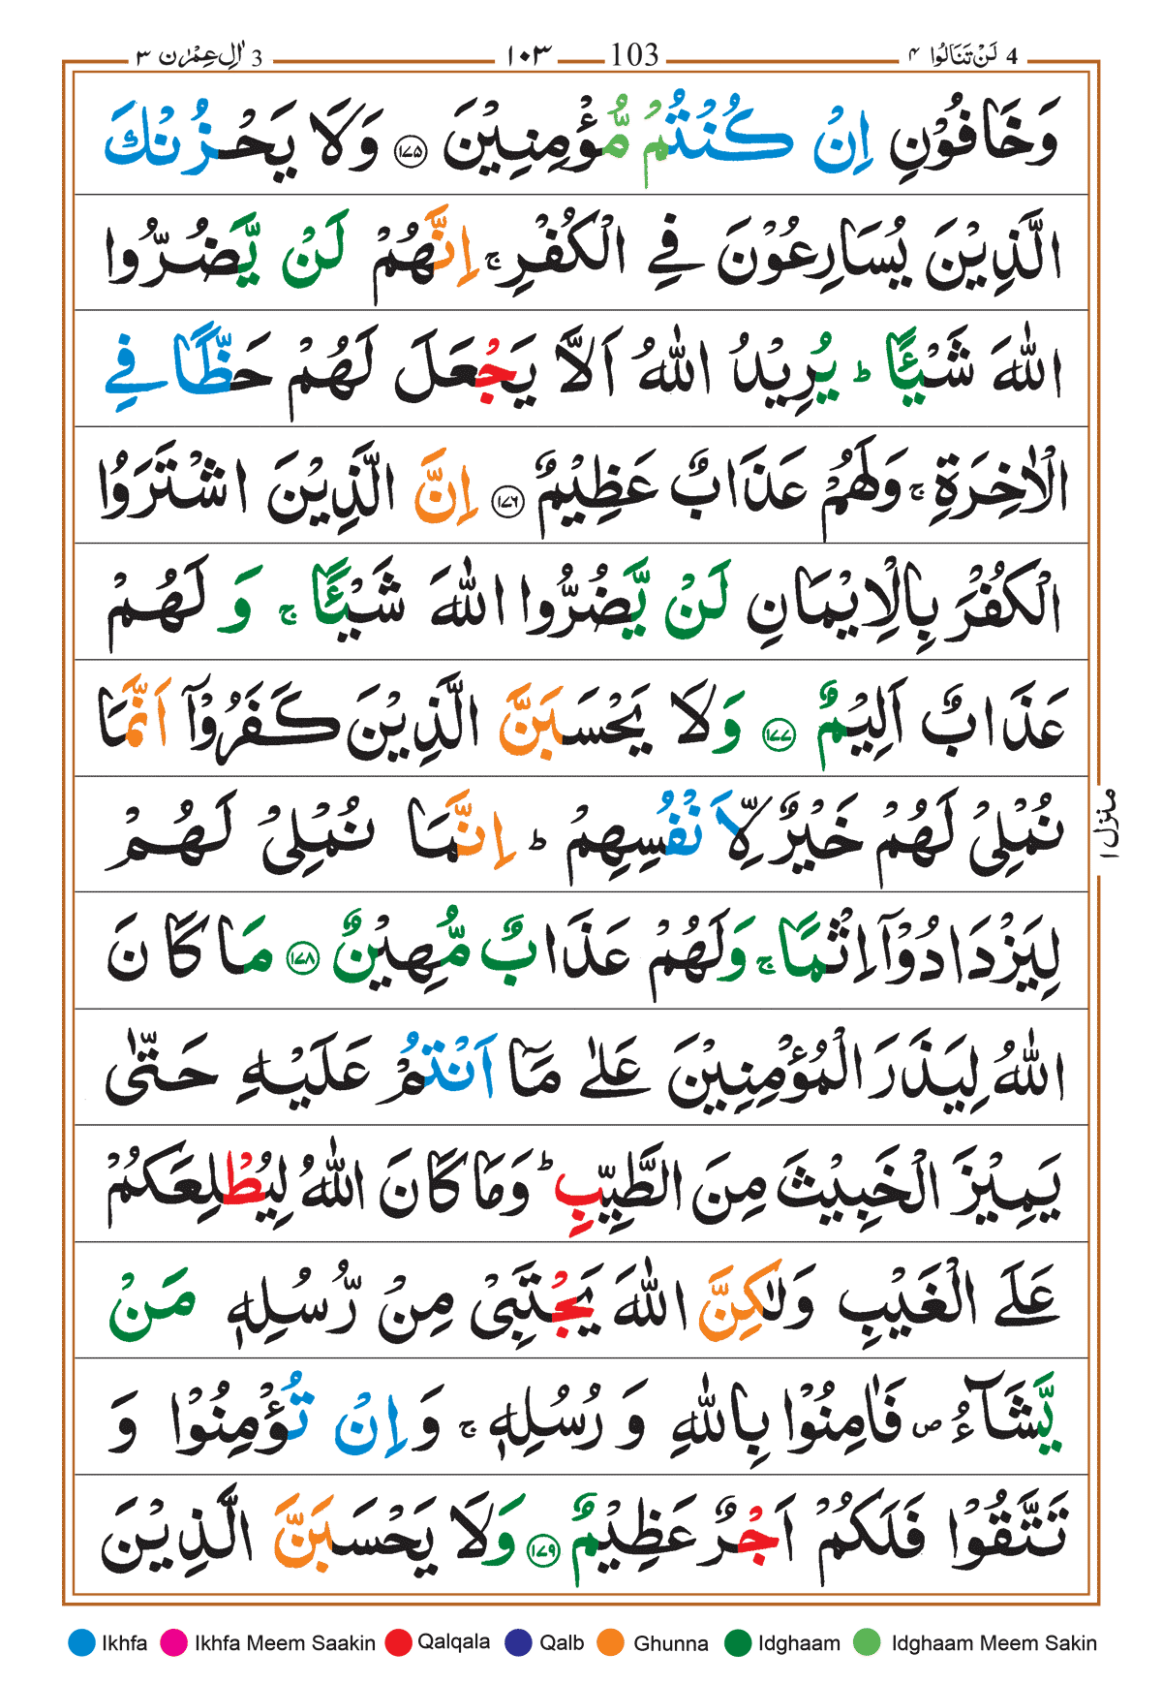 4 لَنْ تَنَالُوا ۴ 103 ١٠٣ 3 اٰلِ عِمْرٰن ٣
وَخَافُوْنِ اِنْ كُنْتُمْ مُّؤْمِنِيْنَ ﴿١٧٥﴾ وَلَا يَحْزُنْكَ
الَّذِيْنَ يُسَارِعُوْنَ فِي الْكُفْرِ ۚ اِنَّهُمْ لَنْ يَّضُرُّوا
اللّٰهَ شَيْـًٔا ؕ يُرِيْدُ اللّٰهُ اَلَّا يَجْعَلَ لَهُمْ حَظًّا فِي
الْاٰخِرَةِ ۚ وَلَهُمْ عَذَابٌ عَظِيْمٌ ﴿١٧٦﴾ اِنَّ الَّذِيْنَ اشْتَرَوُا
الْكُفْرَ بِالْاِيْمَانِ لَنْ يَّضُرُّوا اللّٰهَ شَيْـًٔا ۚ وَ لَهُمْ
عَذَابٌ اَلِيْمٌ ﴿١٧٧﴾ وَلَا يَحْسَبَنَّ الَّذِيْنَ كَفَرُوْۤا اَنَّمَا
نُمْلِيْ لَهُمْ خَيْرٌ لِّاَنْفُسِهِمْ ؕ اِنَّمَا نُمْلِيْ لَهُمْ
لِيَزْدَادُوْۤا اِثْمًا ۚ وَلَهُمْ عَذَابٌ مُّهِيْنٌ ﴿١٧٨﴾ مَا كَانَ
اللّٰهُ لِيَذَرَ الْمُؤْمِنِيْنَ عَلٰى مَاۤ اَنْتُمْ عَلَيْهِ حَتّٰى
يَمِيْزَ الْخَبِيْثَ مِنَ الطَّيِّبِ ؕ وَمَا كَانَ اللّٰهُ لِيُطْلِعَكُمْ
عَلَى الْغَيْبِ وَلٰكِنَّ اللّٰهَ يَجْتَبِيْ مِنْ رُّسُلِهٖ مَنْ
يَّشَآءُ ۪ فَاٰمِنُوْا بِاللّٰهِ وَ رُسُلِهٖ ۚ وَاِنْ تُؤْمِنُوْا وَ
تَتَّقُوْا فَلَكُمْ اَجْرٌ عَظِيْمٌ ﴿١٧٩﴾ وَلَا يَحْسَبَنَّ الَّذِيْنَ
منزل ١
Ikhfa Ikhfa Meem Saakin Qalqala Qalb Ghunna Idghaam Idghaam Meem Sakin